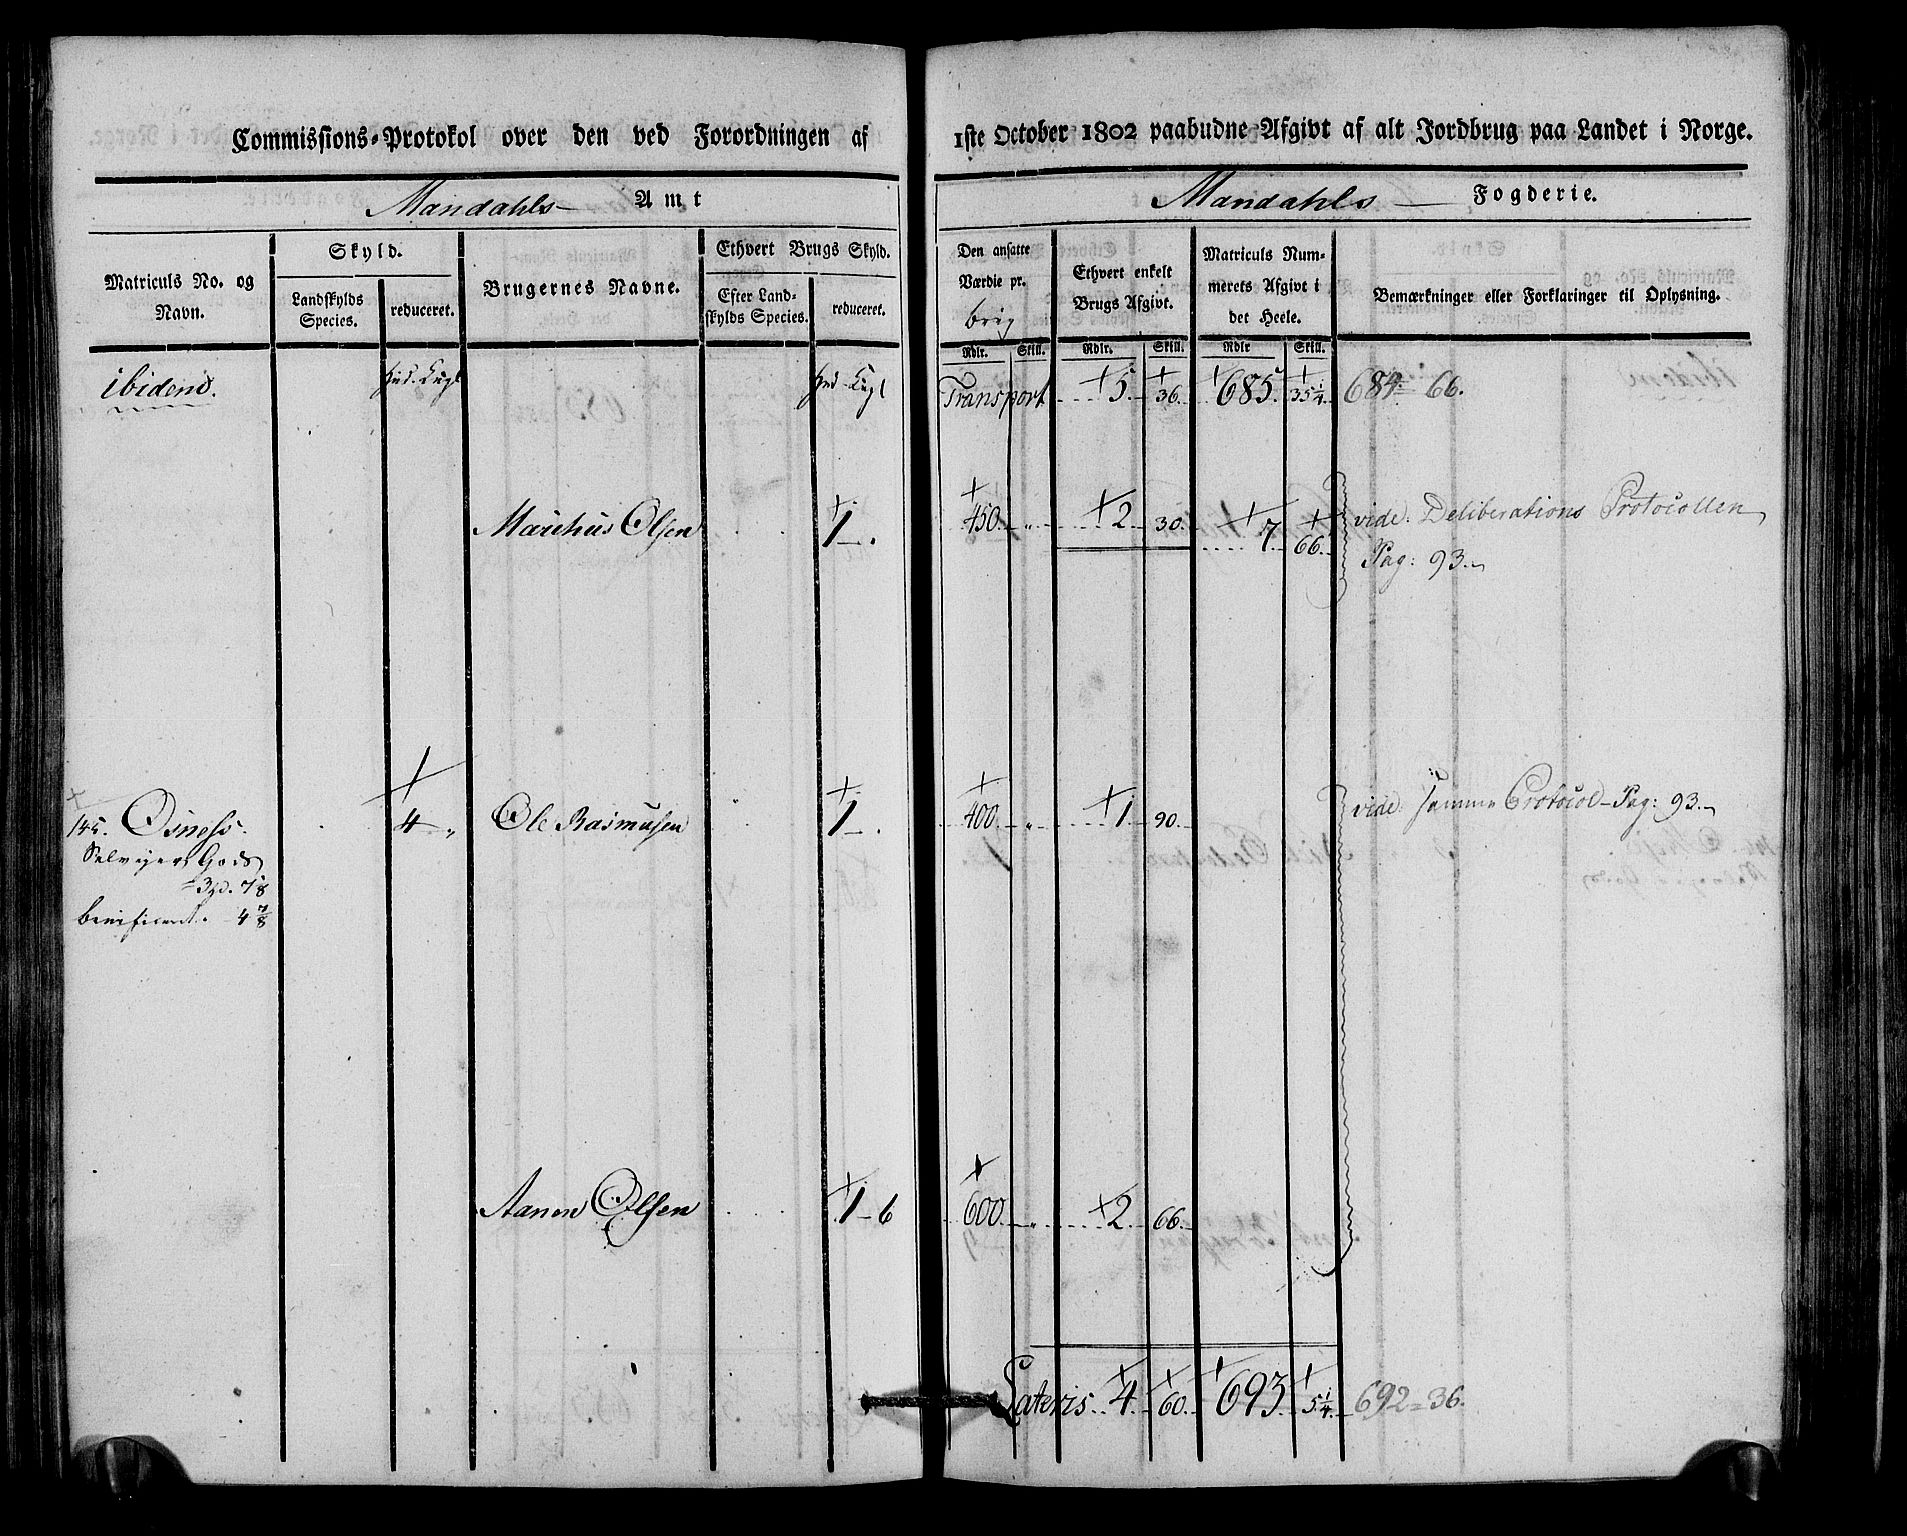 Commissions-Protokol over den ved Forordningen af 1ste October 1802 paabudne Afgivt af alt Jordbrug paa Landet i Norge.
Mandahls Amt
Mandahls Fogderie.
Matriculs No. og Navn.
Skyld.
Landskylds Species.
reduceret.
Brugernes Navne.
Ethvert Brugs Skyld.
Efter Landskylds Species.
reduceret.
Den ansatte Værdie pr.
Rdlr. Skill.
Ethvert enkelt Brugs Afgivt.
Rdlr. Skill.
Matriculs Nummerets Afgivt i det Heele.
Rdlr Skill.
Bemærkninger eller Forklaringer til Oplysning.
ibidem.
Transport 5 36 685 35¼ 684 66.
Olsen 1 - 450 " 2 30 7 66 vide: Deliberations Protocollen
Pag: 93.
145. Osness. 4 " Ole Rasmusen 1 - 400 " 1 90 vide: samme Protocol Pag: 93.
Selveyer Gods
benificeret 4⅞
Olsen 1 - 6 600 " 2 66
Lateris 4 60 693 5¼ 692 = 36.